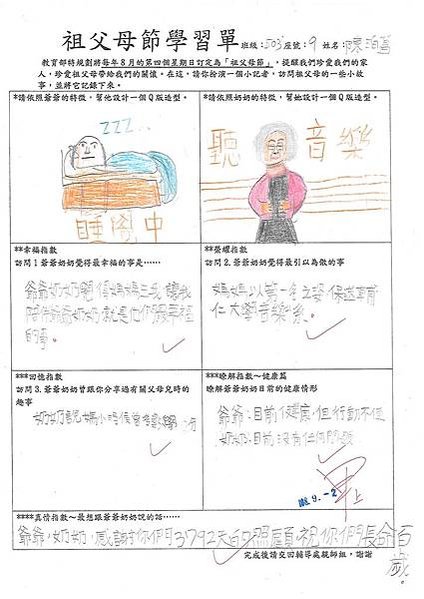 祖父母節學習單 班級:503座號:9 姓名:陳
教育部特規劃將每年8月的第四個星期日訂定為「祖父母節」,提醒我們珍愛我們的家
人,珍愛祖父母帶給我們的關懷。在這,請你扮演一個小記者,訪問祖父母的一些小故
事,並將它記錄下來。
*請依照爺爺的特徵,幫他設計一個Q版造型。
ZZZ..
睡覺中
*請依照奶奶的特徵,幫她設計一個Q版造型。
聽音樂
**幸福指數
訪問1.爺爺奶奶覺得最幸福的事是……
爺爺奶奶
陪伴爺爺奶奶就是他們最幸福
的事。
**榮耀指數
訪問2.爺爺奶奶覺得最引以為傲的事
媽媽以第一名之姿保送輔
仁大學音樂系。
***回憶指數
訪問3.爺爺奶奶曾跟你分享過有關父母兒時的
趣事
奶奶說媽媽小時候曾
***瞭解指數~健康篇
瞭解爺爺奶奶目前的健康情形
爺爺:目前健康,但行動不便
奶奶:目前沒有任何問題
9.-2
****真情指數~最想跟爺爺奶奶說的話……
爺爺、奶奶,感謝你們3792天的照顧祝你們長命百
歲。
完成後請交回輔導處親師組,謝謝